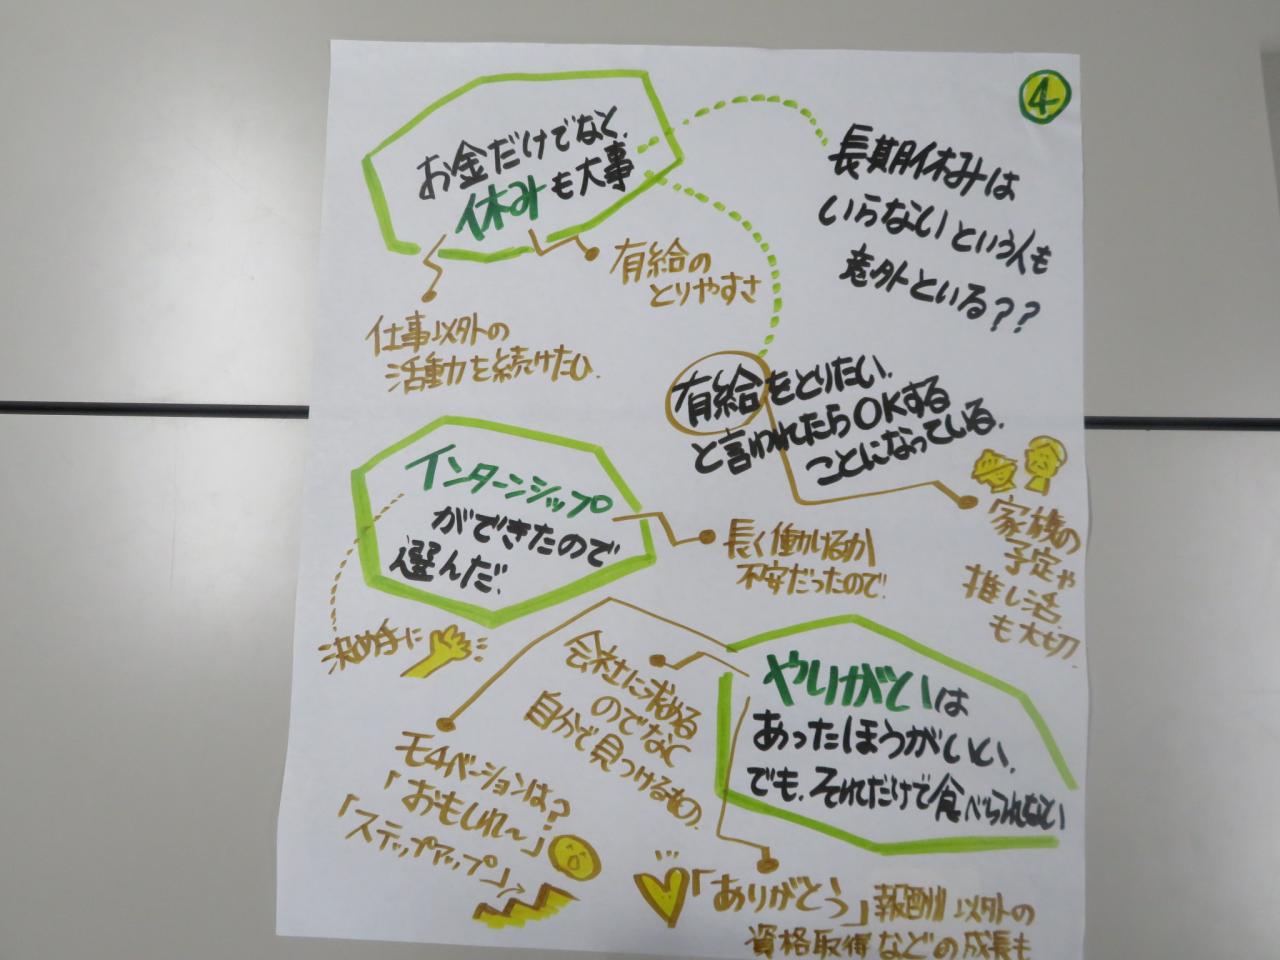 4
お金だけでなく、
休みも大事
長期休みは
いらないという人も
意外といる??
有給の
とりやすさ
仕事以外の
活動を続けたい。
有給をとりたい。
と言われたらOKする
ことになっている。
家族の
予定や
推し活
も大切。
インターンシップ
ができたので
選んだ。
長く働けるか
不安だったので
決め手に
会社に求める
のでなく
自分で見つけるもの。
やりがいは
あったほうがいい、
でも、それだけで食べられない
モチベーションは?
「おもしれ〜」
「ステップアップ」
「ありがとう」報酬以外の
資格取得などの成長も